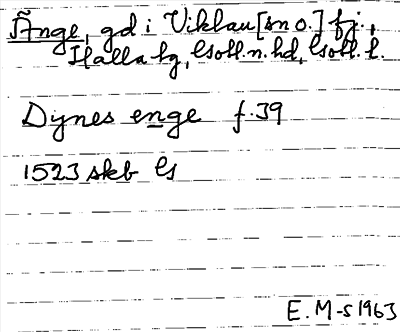 Änge, gd i Viklau [sn o.] fj.,
Halla tg, Gotl. n. hd, Gotl. l.
Dynes enge f. 39
1523 skb Gs
E. M-s 1963